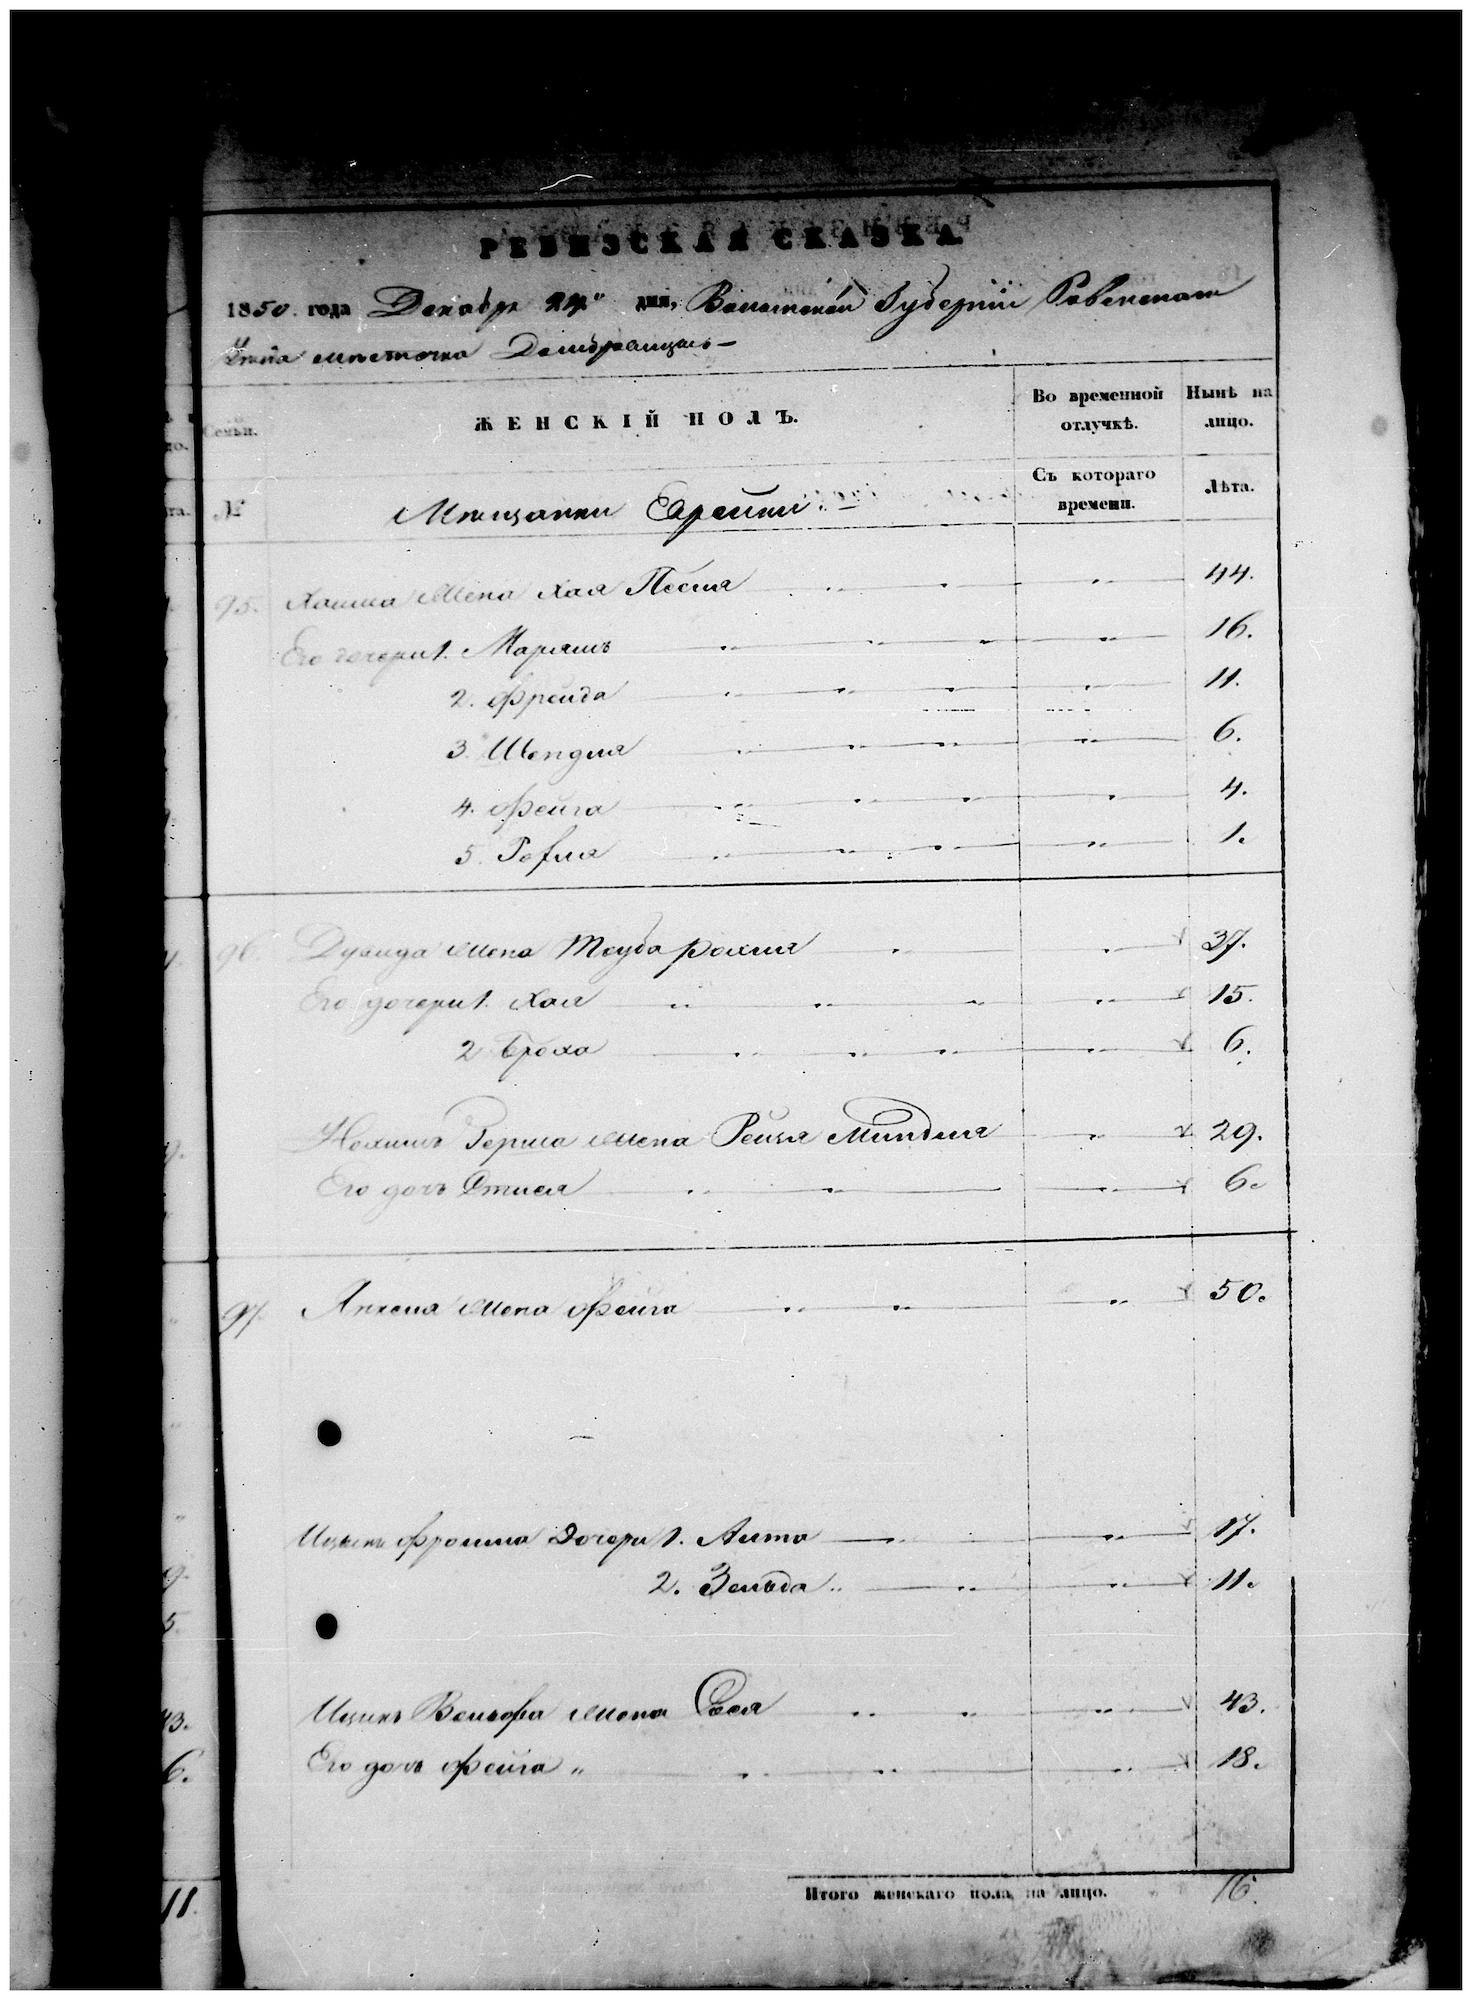 РЕВИЗСКАЯ СКАЗКА.
1850. года Декабря дня, Волынской Губерніи Ровенскаго
Уезда местечка Домбровицы
Семьи.
ЖЕНСКІЙ ПОЛЪ.
Во временной отлучкѣ.
Нынѣ на лицо.
№
Мещанки Еврейки
Съ котораго времени.
Лѣта.
95. Жена Хая Песля 44.
Его дочери 1. Марьямъ 16.
2. Фрейда 11.
3. Шендля 6.
4. Фейга 4.
5. 1.
96. Дувида жена Тауба Рахля 37.
Его дочери 1. Хая 15.
2. Броха 6.
Герша жена Рейзя Миндля 29.
Его дочь 6.
97. Анчеля жена Фейга 50.
Ицыкъ Фроима Дочери 1. 17.
2. Зельда 11.
Ицыкъ Вольфа жена 43.
Его дочь Фейга 18.
Итого женскаго пола на лицо. 16.
9.
5.
43.
6.
11